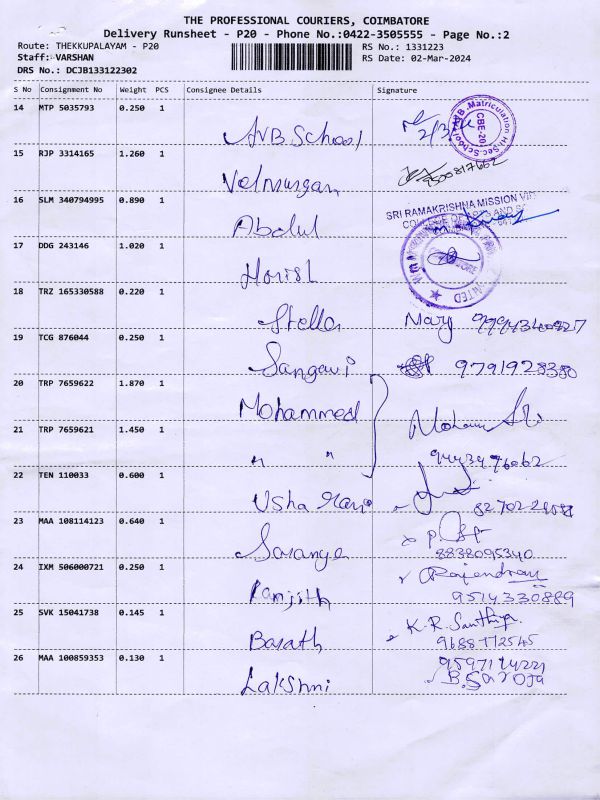 THE PROFESSIONAL COURIERS, COIMBATORE
Delivery Runsheet - P20 - Phone No.:0422-3505555 - Page No.:2
Route: THEKKUPALAYAM - P20 RS No.: 1331223
Staff: VARSHAN RS Date: 02-Mar-2024
DRS No.: DCJB133122302
S No Consignment No Weight PCS Consignee Details Signature
14 MTP 5035793 0.250 1 AVB School
15 RJP 3314165 1.260 1 Velmurugan 9500817662
16 SLM 340794995 0.890 1 Abdul
SRI RAMAKRISHNA MISSION
17 DDG 243146 1.020 1 Harish
18 TRZ 165330588 0.220 1 Stella Mary
19 TCG 876044 0.250 1 Sangavi 9791928380
20 TRP 7659622 1.870 1 Mohammed
21 TRP 7659621 1.450 1 " " 9443476062
22 TEN 110033 0.600 1 Usha Rani
23 MAA 108114123 0.640 1 Saranya 8838095340
24 IXM 506000721 0.250 1 Ranjith Rajendran 9514330889
25 SVK 15041738 0.145 1 Barath K.R. Santhiya 9688772545
26 MAA 100859353 0.130 1 Lakshmi B. Saroja